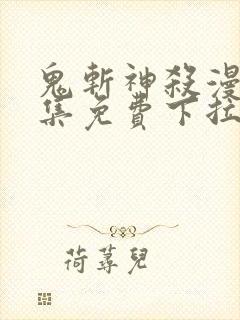 鬼斬神殺漫
集免費下拉
荷蕁兒